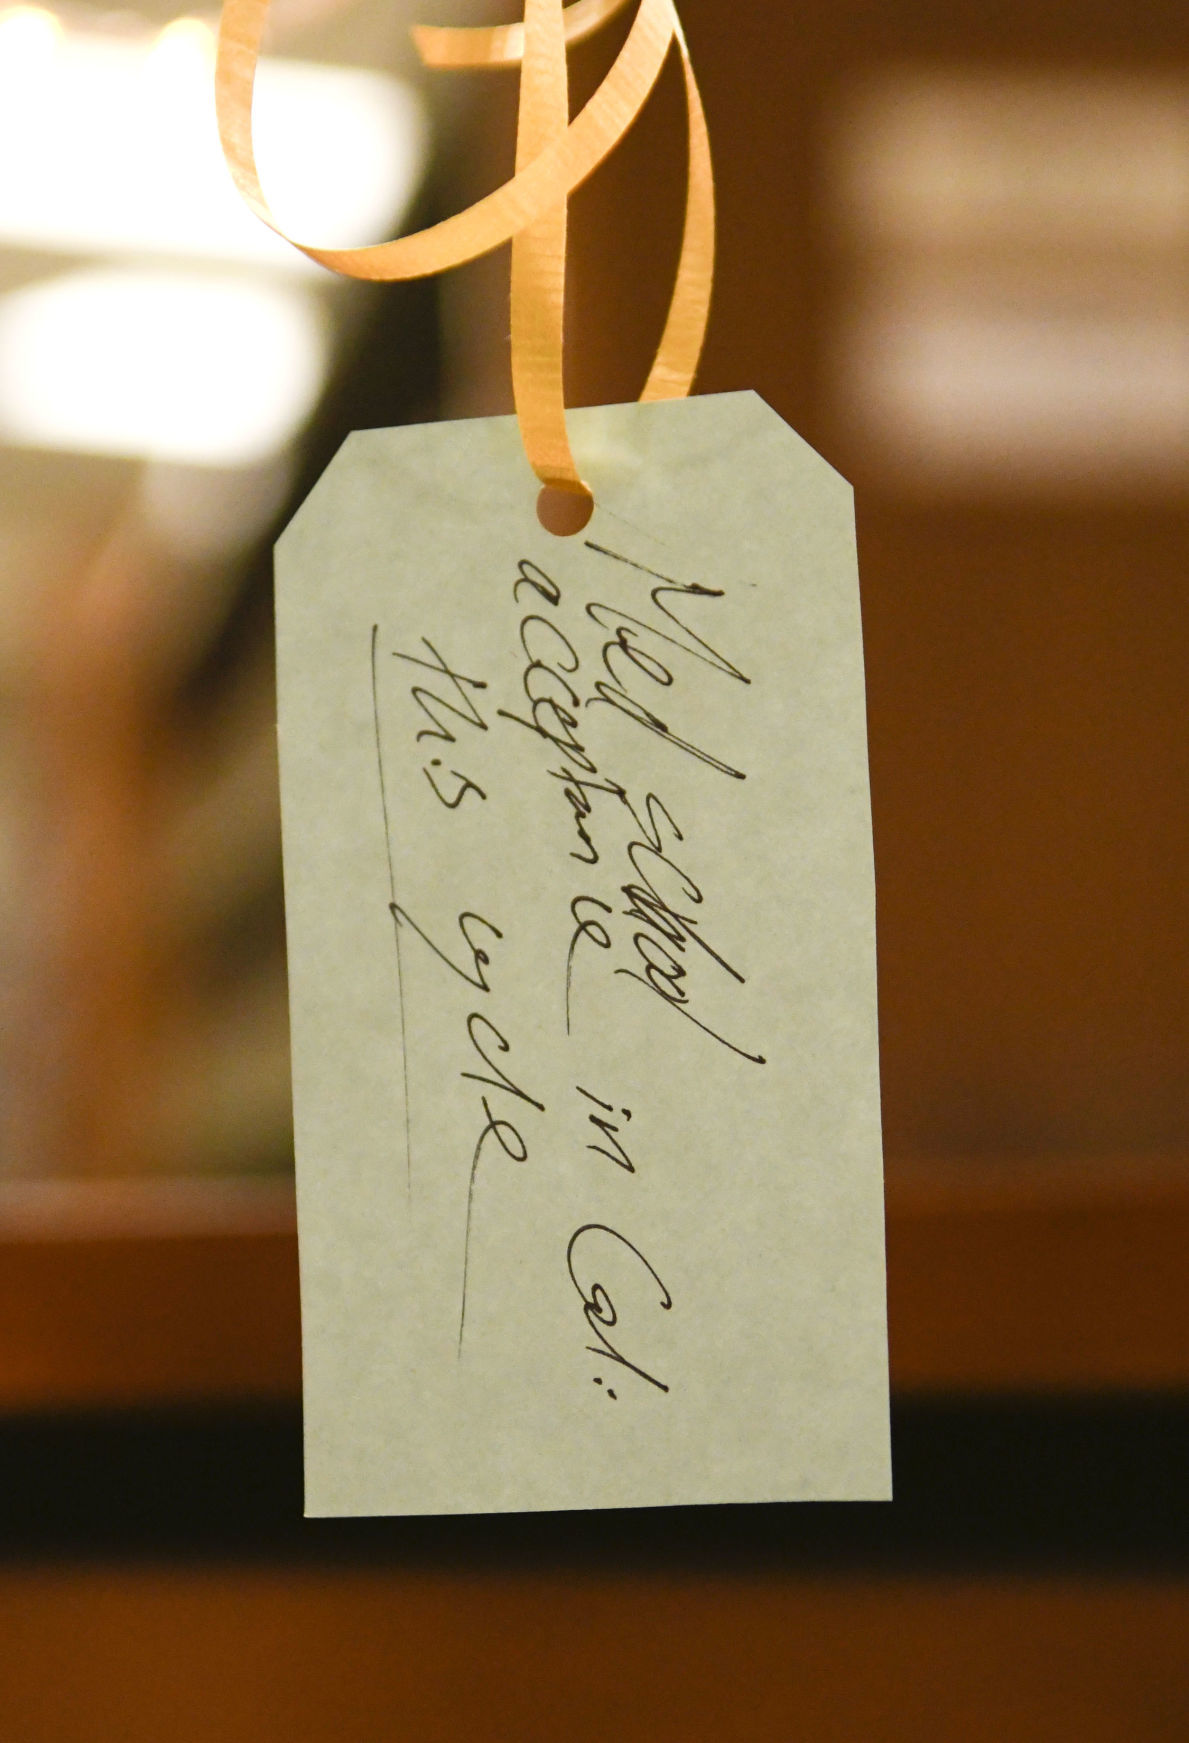 Med school
acceptance in Cali
this cycle